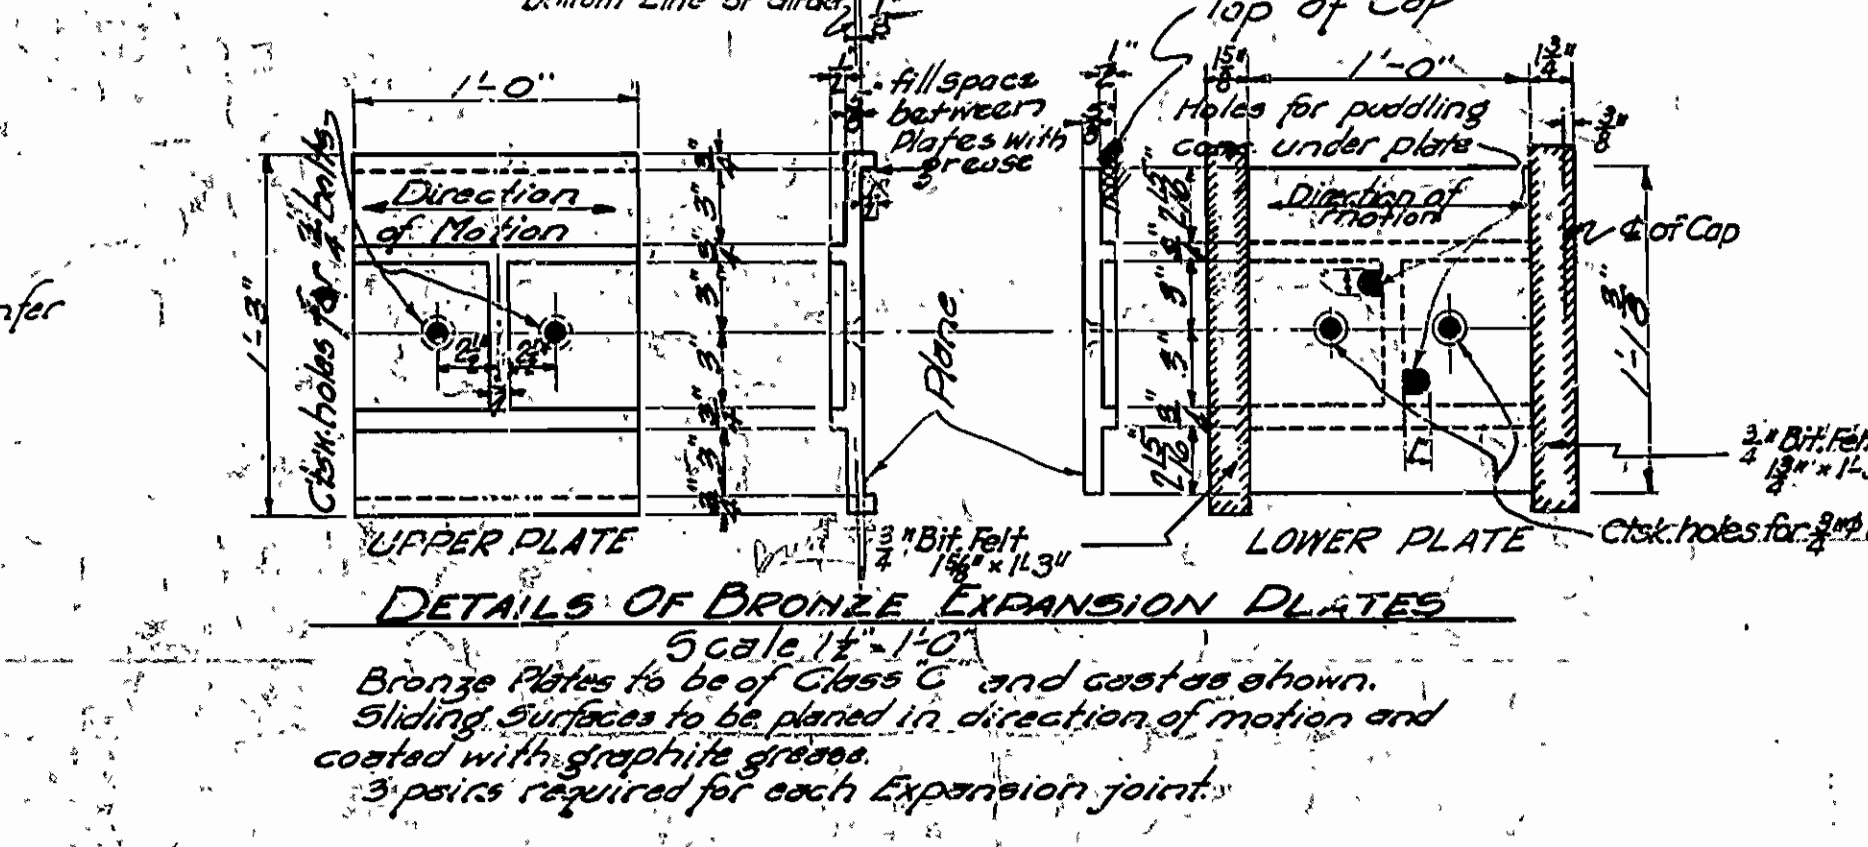 Bottom Line of Girder
Top of Cap
1'-0"
1/2
fill space
between
Plates with
grease
1/2"
5/8
1 5/8"
1'-0"
1 3/4"
3/8"
Holes for puddling
conc. under plate
Direction
of Motion
Direction of
motion
¢ of Cap
1'-3"
Ctsk. holes for 3/4 bolts
3/4"
3"
3/4"
3"
3"
3/4"
3"
3/4"
2 1/4"
2 1/4"
1/2"
Plane
2 15/16"
3/4"
3"
3"
3/4"
2 15/16"
1"
1"
1'-1 3/8"
3/4" Bit. Felt
1 3/4" x 1'-3
UPPER PLATE
3/4" Bit. Felt
1 5/8" x 1'-3"
LOWER PLATE
Ctsk. holes for 3/4"ϕ
nfer
DETAILS OF BRONZE EXPANSION PLATES
Scale 1 1/2" = 1'-0"
Bronze Plates to be of Class "C" and cast as shown.
Sliding Surfaces to be planed in direction of motion and
coated with graphite grease.
3 pairs required for each Expansion joint.